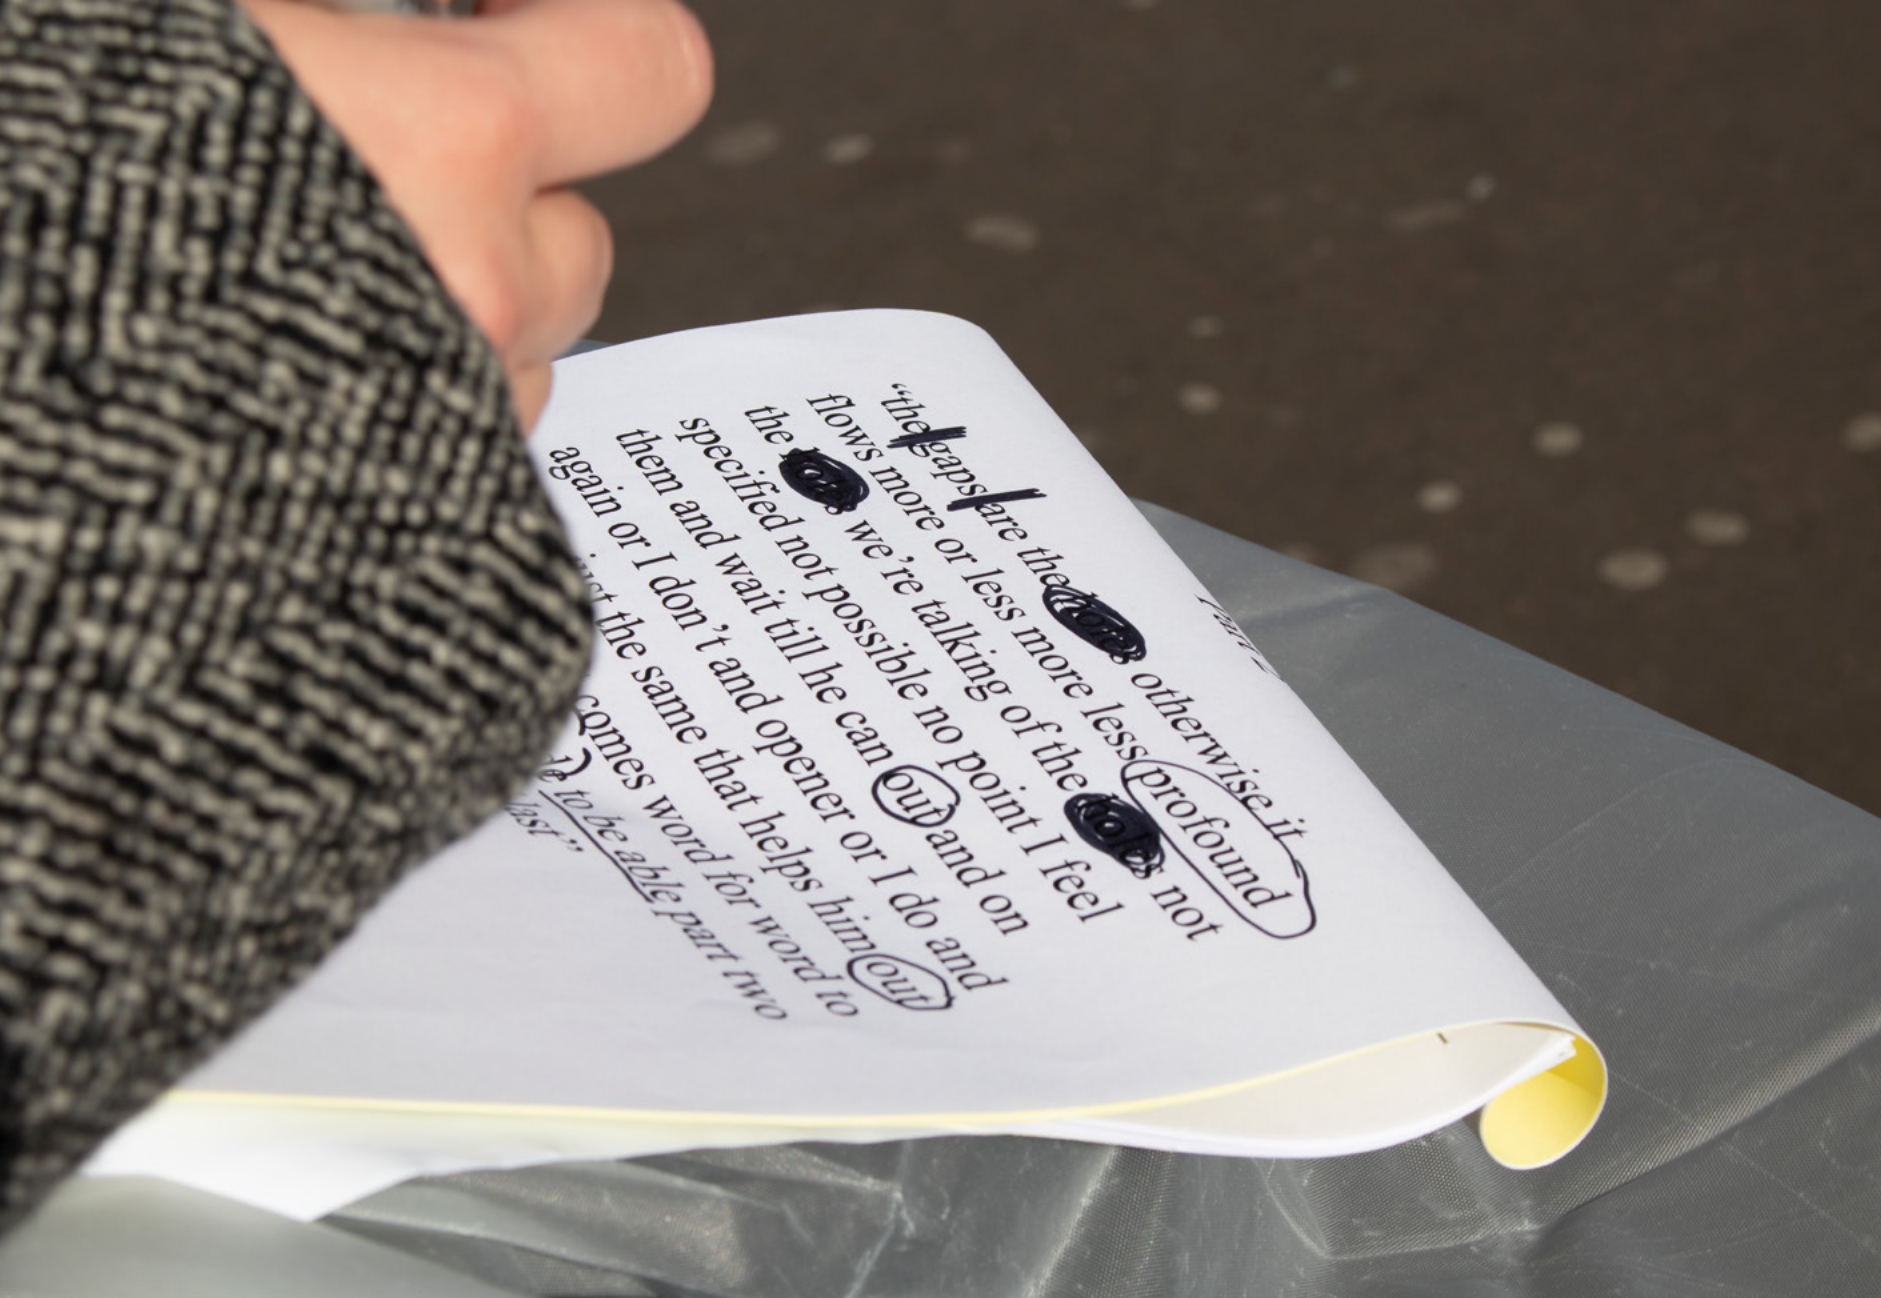 "the gaps are the holes otherwise it
flows more or less more less profound
the holes we're talking of the holes not
specified not possible no point I feel
them and wait till he can out and on
again or I don't and opener or I do and
just the same that helps him out
comes word for word to
to be able part two
last"